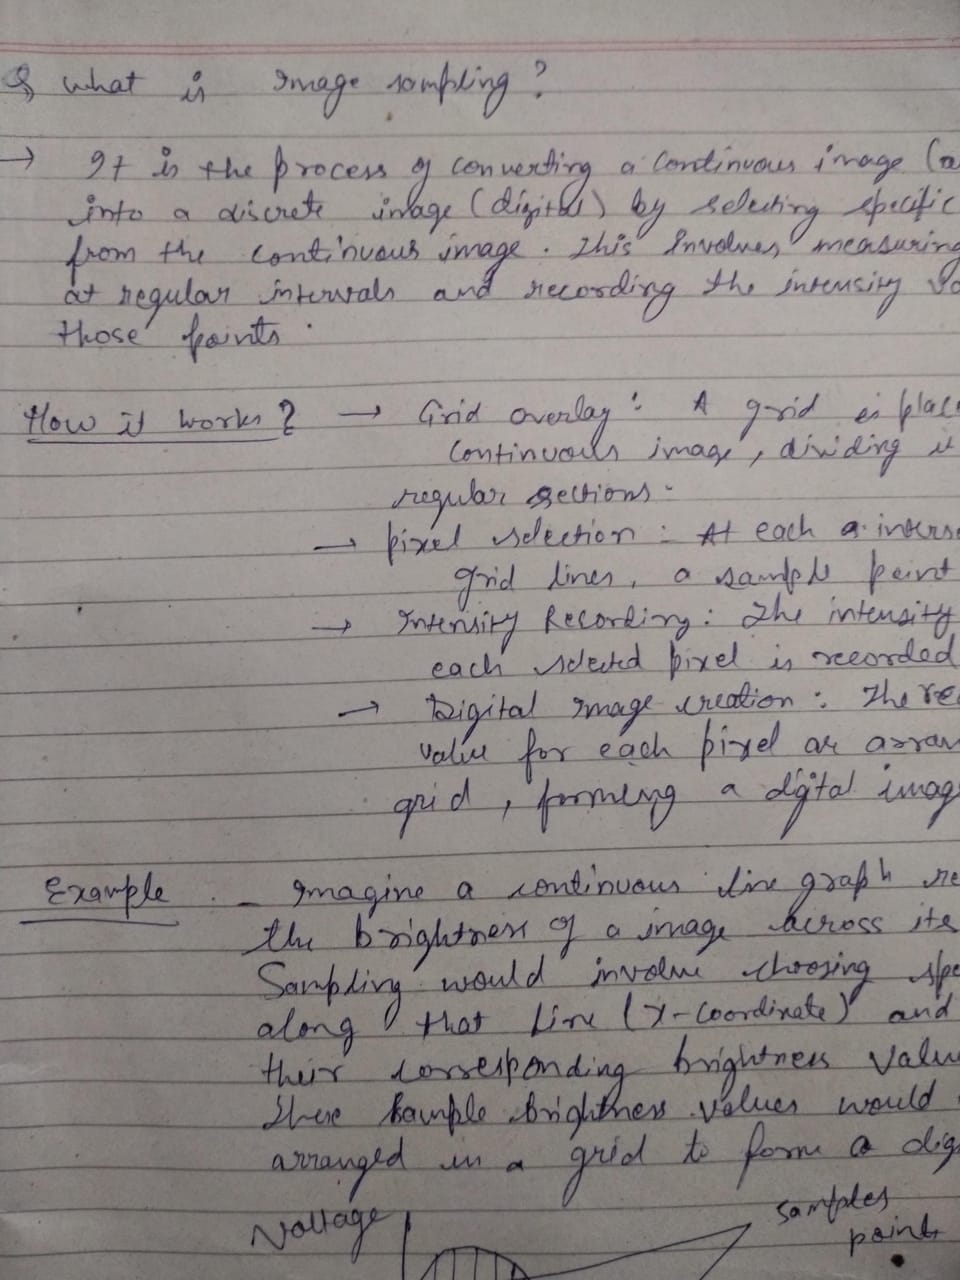 Q what is Image sampling?
→ It is the process of converting a continuous image (a
into a discrete image (digital) by selecting specific
from the continuous image. This Involves measuring
at regular intervals and recording the intensity va
those points.
How it works? → Grid overlay: A grid is plac
continuous image, dividing it
regular sections.
→ pixel selection: At each a inters
grid lines, a sample point
→ Intensity Recording: The intensity
each selected pixel is recorded
→ Digital Image creation: The re
value for each pixel are arran
grid, forming a digtal imag
Example - Imagine a continuous line graph re
the brightness of a image across its
Sampling would involve choosing spe
along that line (x-coordinate) and
their corresponding brightness valu
These sample brightness values would
arranged in a grid to form a dig
Voltage samples
point